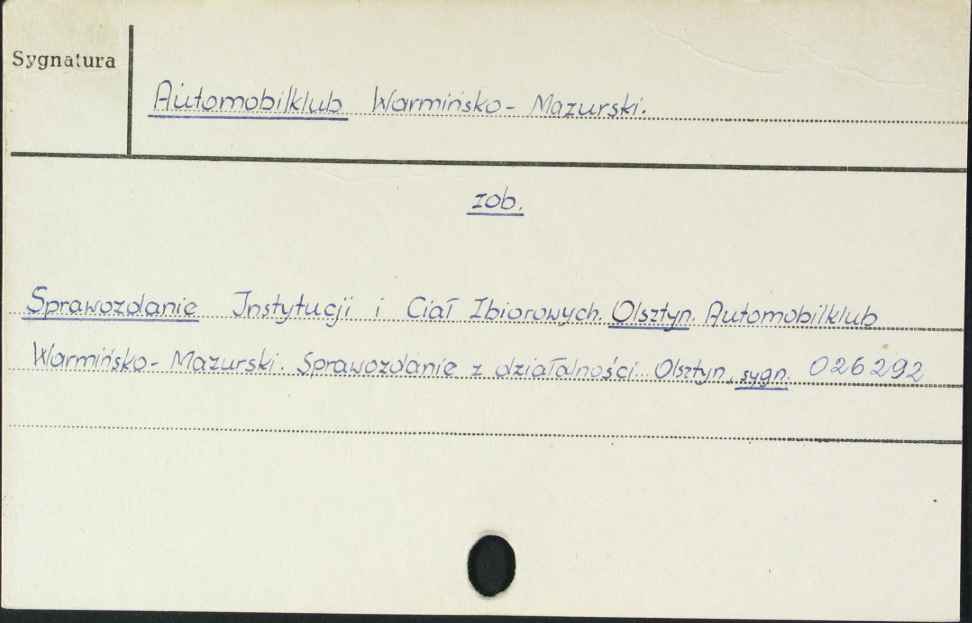 Sygnatura
Automobilklub Warmińsko - Mazurski.
zob.
Sprawozdanie Instytucji i Ciał Zbiorowych. Olsztyn. Automobilklub
Warmińsko - Mazurski. Sprawozdanie z działalności. Olsztyn, sygn. 026292